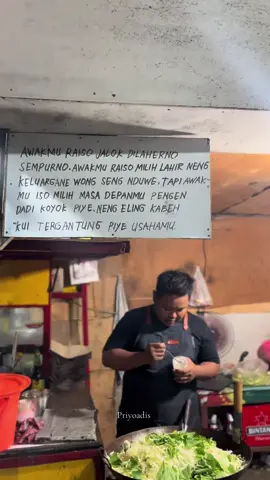 AWAKMU RAISO JALOK DILAHERNO
SEMPURNO. AWAKMU RAISO MILIH LAHIR NENG
KELUARGANE WONG SENG NDUWE. TAPI AWAK-
MU ISO MILIH MASA DEPANMU PENGEN
DADI KOYOK PIYE. NENG ELING KABEH
KUI TERGANTUNG PIYE USAHAMU.
Priyoadis
BINTANG